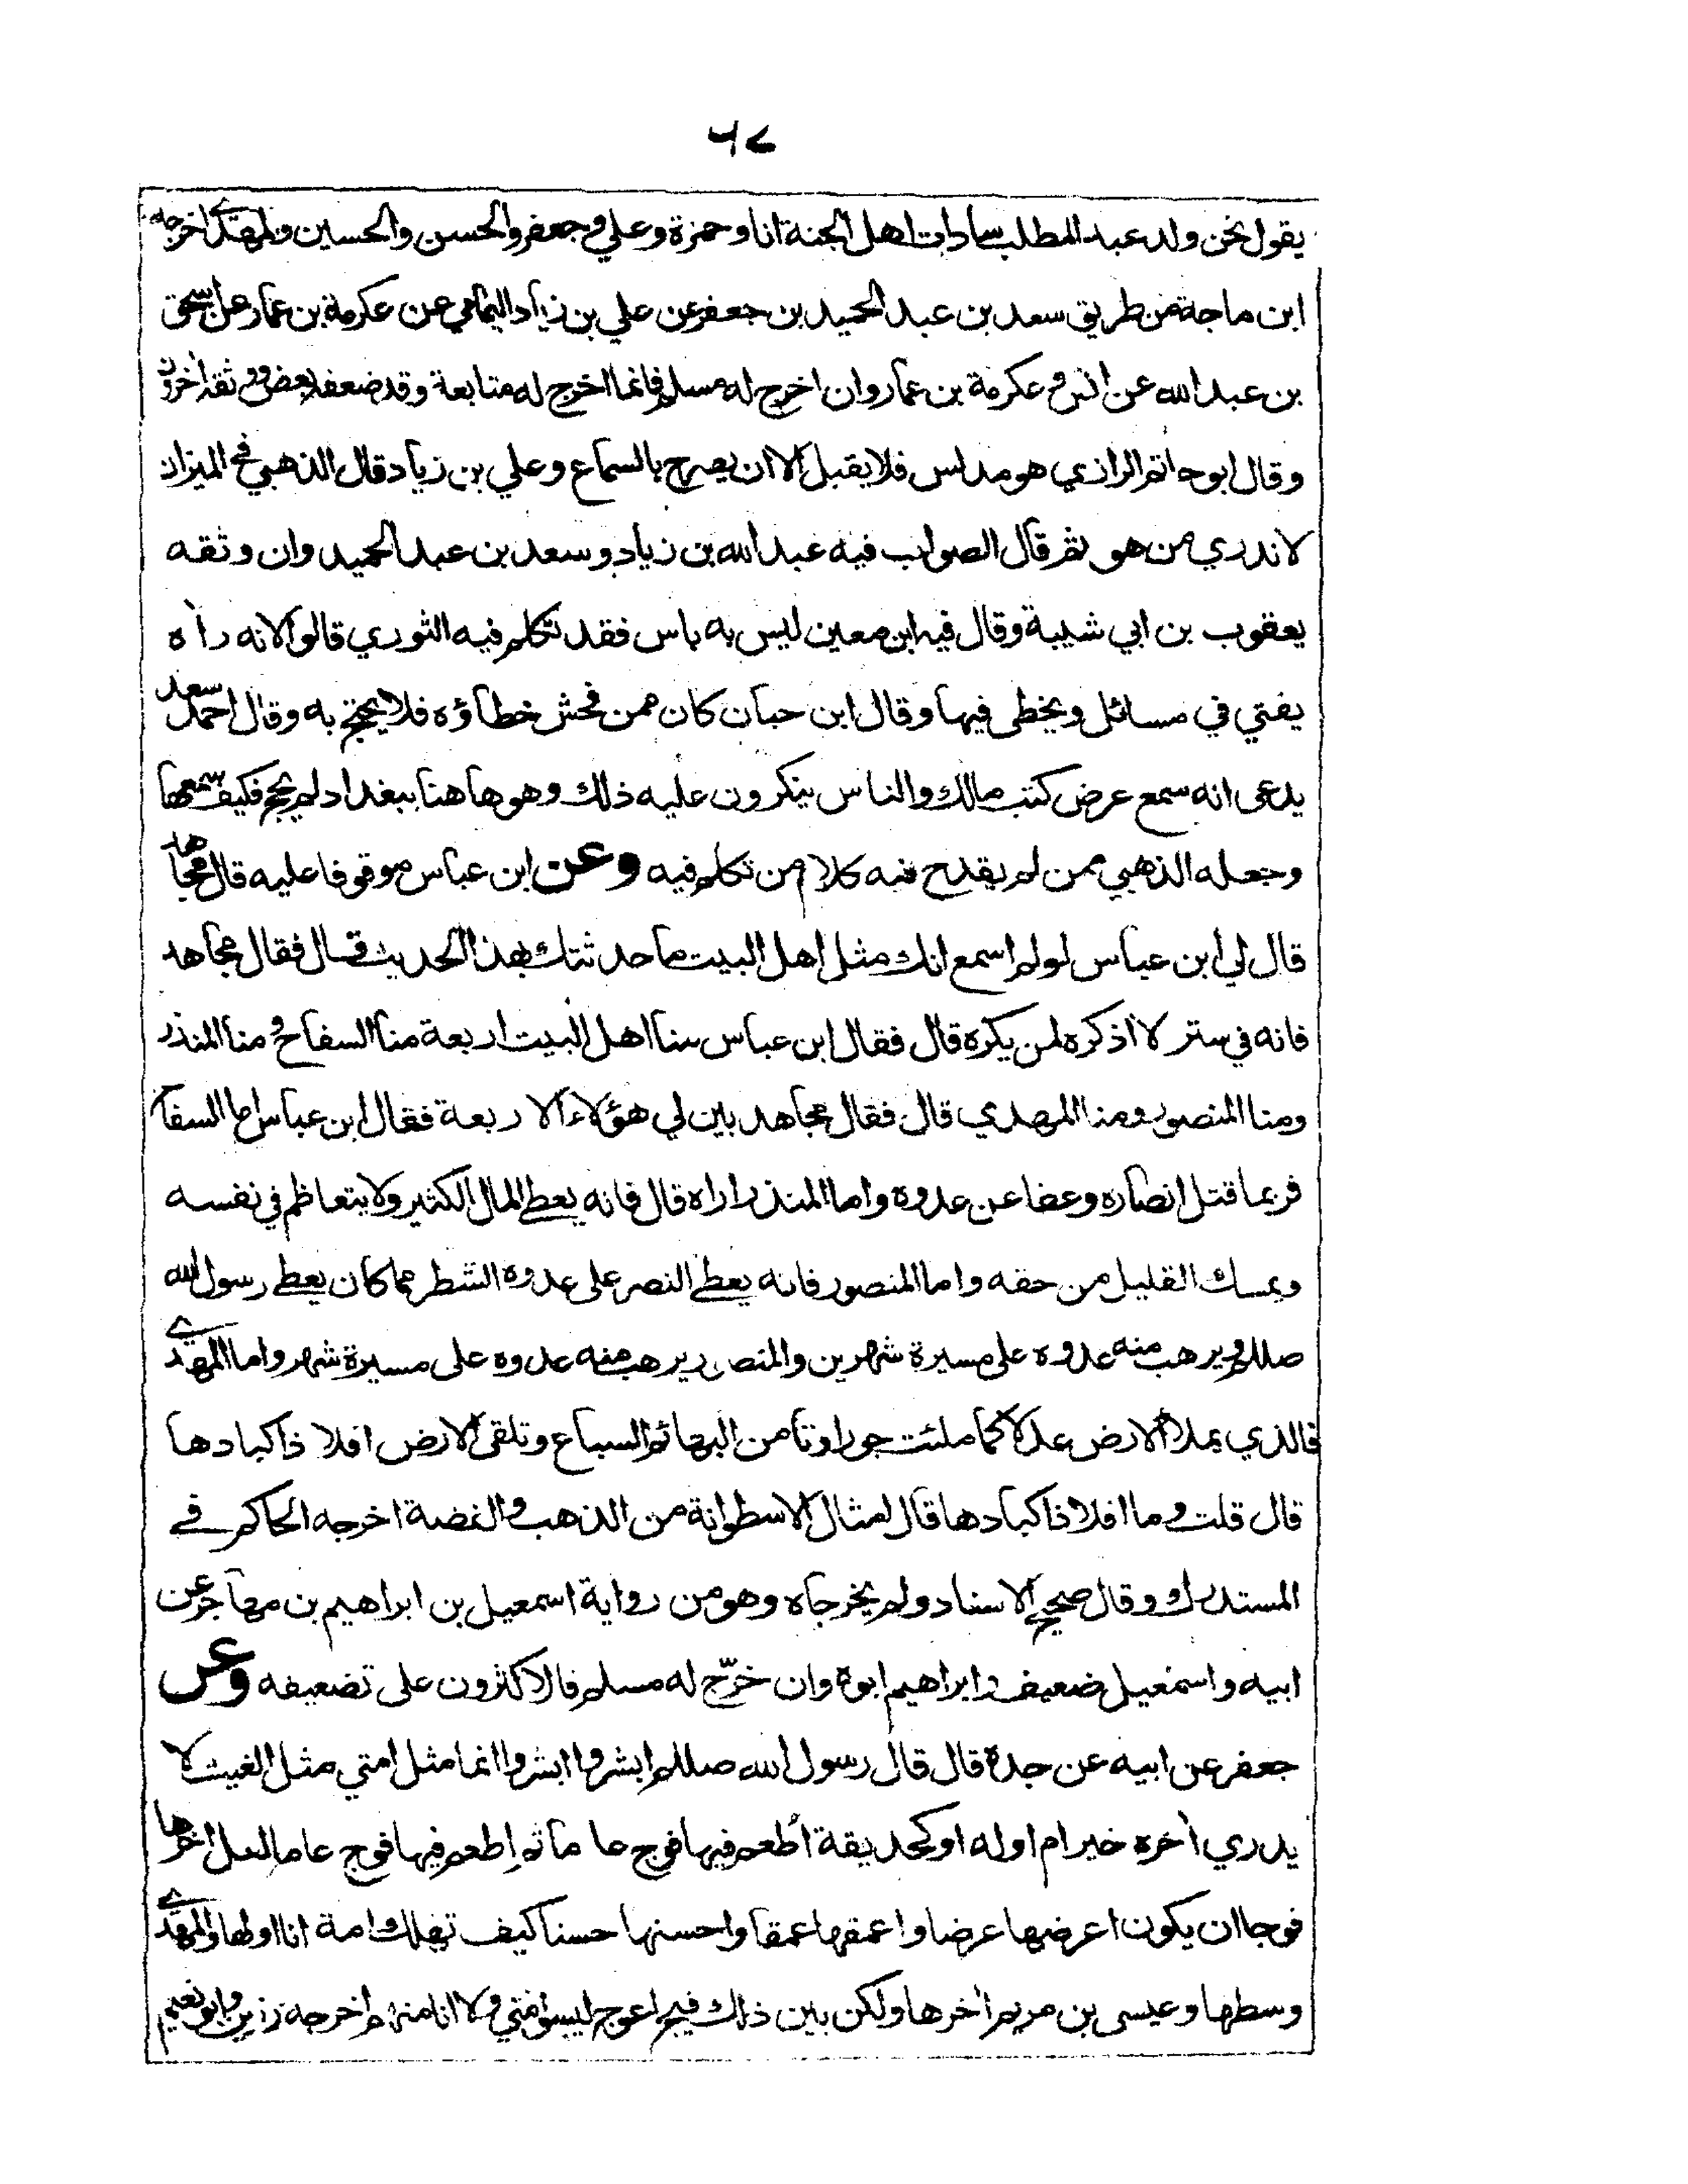 ٦٧
يقول نحن ولد عبد المطلب سادات اهل الجنة انا وحمزة وعلي وجعفر والحسن والحسين والمهدي اخرجه
ابن ماجة من طريق سعد بن عبد الحميد بن جعفر عن علي بن زياد اليمامي عن عكرمة بن عمار عن اسحق
بن عبد الله عن انس وعكرمة بن عمار وان اخرج له مسلم فانما اخرج له متابعة وقد ضعفه بعض ووثقه اخرون
وقال ابو حاتم الرازي هو مدلس فلا يقبل الا ان يصرح بالسماع وعلي بن زياد قال الذهبي في الميزان
لا ندري من هو ثم قال الصواب فيه عبد الله بن زياد وسعد بن عبد الحميد وان وثقه
يعقوب بن ابي شيبة وقال فيه ابن معين ليس به باس فقد تكلم فيه الثوري قالوا لانه رأه
يفتي في مسائل ويخطى فيها وقال ابن حبان كان ممن فحش خطاؤه فلا يحتج به وقال احمد سعد
يدعى انه سمع عرض كتب مالك والناس ينكرون عليه ذلك وهو هاهنا ببغداد لم يحج فكيف سمعها
وجعله الذهبي ممن لم يقدح فيه كلام من تكلم فيه وعن ابن عباس موقوفا عليه قال مجاهد
قال لي ابن عباس لو لم اسمع انك مثل اهل البيت ما حدثتك بهذا الحديث قال فقال مجاهد
فانه في ستر لا اذكره لمن يكره قال فقال ابن عباس منا اهل البيت اربعة منا السفاح ومنا المنذر
ومنا المنصور ومنا المهدي قال فقال مجاهد بين لي هؤلاء الاربعة فقال ابن عباس اما السفاح
فربما قتل انصاره وعفا عن عدوه واما المنذر اراه قال فانه يعطي المال الكثير ولا يتعاظم في نفسه
ويمسك القليل من حقه واما المنصور فانه يعطي النصر على عدوه الشطر مما كان يعطي رسول الله
صللم ويرهب منه عدوه على مسيرة شهرين والمنصور يرهب منه عدوه على مسيرة شهر واما المهدي
فالذي يملأ الارض عدلا كما ملئت جورا وتأمن البهائم السباع وتلقى الارض افلاذ اكبادها
قال قلت وما افلاذ اكبادها قال امثال الاسطوانة من الذهب والفضة اخرجه الحاكم في
المستدرك وقال صحيح الاسناد ولم يخرجاه وهو من رواية اسمعيل بن ابراهيم بن مهاجر عن
ابيه واسمعيل ضعيف وابراهيم ابوه وان خرّج له مسلم فالاكثرون على تضعيفه وعن
جعفر عن ابيه عن جده قال قال رسول الله صللم ابشروا ابشروا انما مثل امتي مثل الغيث لا
يدري أخره خير ام اوله او كحديقة أطعم فيها فوج عاما ثم اطعم فيها فوج عاما لعل اخرها
فوجا ان يكون اعرضها عرضا واعمقها عمقا واحسنها حسنا كيف تهلك امة انا اولها والمهدي
وسطها وعيسى بن مريم أخرها ولكن بين ذلك فيج اعوج ليسوا مني ولا انا منهم اخرجه رزين وابو نعيم